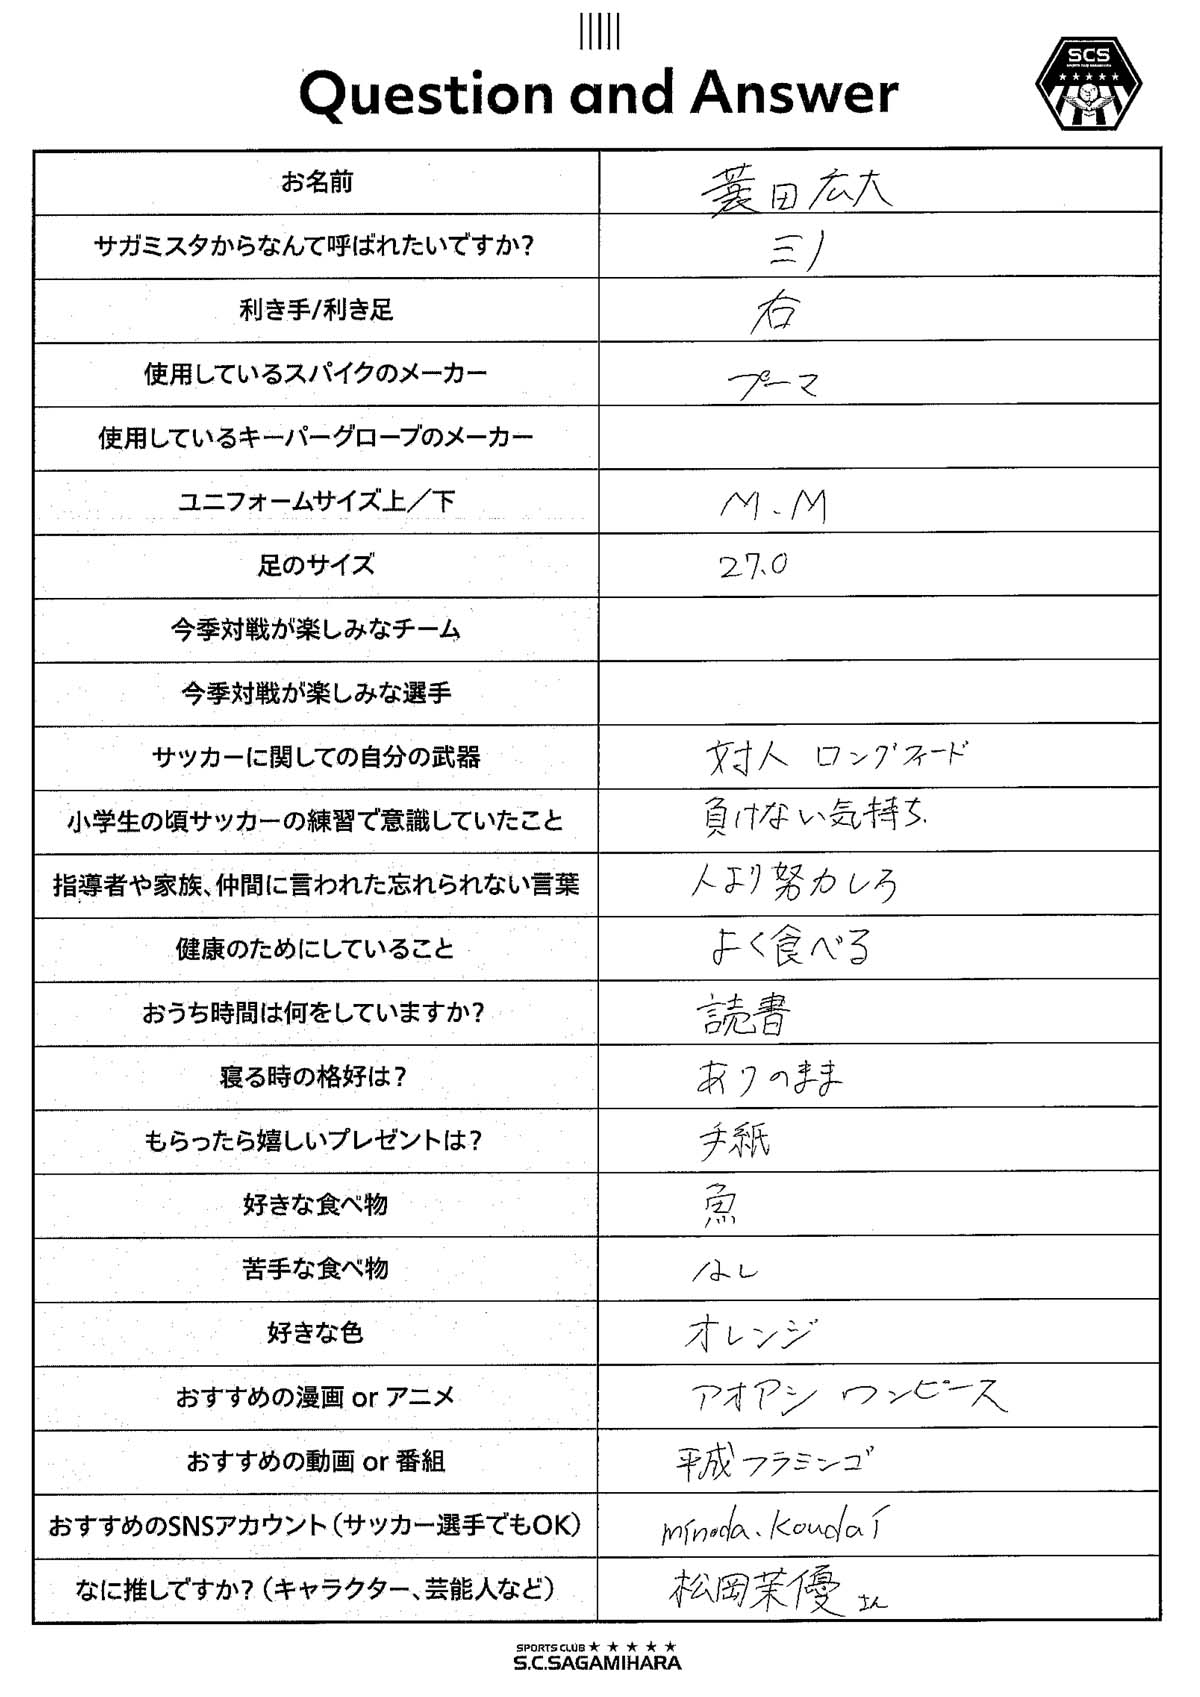 Question and Answer
SCS
SPORTS CLUB SAGAMIHARA
お名前 蓑田広大
サガミスタからなんて呼ばれたいですか? ミノ
利き手/利き足 右
使用しているスパイクのメーカー プーマ
使用しているキーパーグローブのメーカー
ユニフォームサイズ上／下 M.M
足のサイズ 27.0
今季対戦が楽しみなチーム
今季対戦が楽しみな選手
サッカーに関しての自分の武器 対人 ロングフィード
小学生の頃サッカーの練習で意識していたこと 負けない気持ち.
指導者や家族、仲間に言われた忘れられない言葉 人より努力しろ
健康のためにしていること よく食べる
おうち時間は何をしていますか? 読書
寝る時の格好は? ありのまま
もらったら嬉しいプレゼントは? 手紙
好きな食べ物 魚
苦手な食べ物 なし
好きな色 オレンジ
おすすめの漫画 or アニメ アオアシ ワンピース
おすすめの動画 or 番組 平成フラミンゴ
おすすめのSNSアカウント（サッカー選手でもOK） minoda.koudai
なに推しですか?（キャラクター、芸能人など） 松岡茉優さん
SPORTS CLUB ★ ★ ★ ★ ★
S.C.SAGAMIHARA